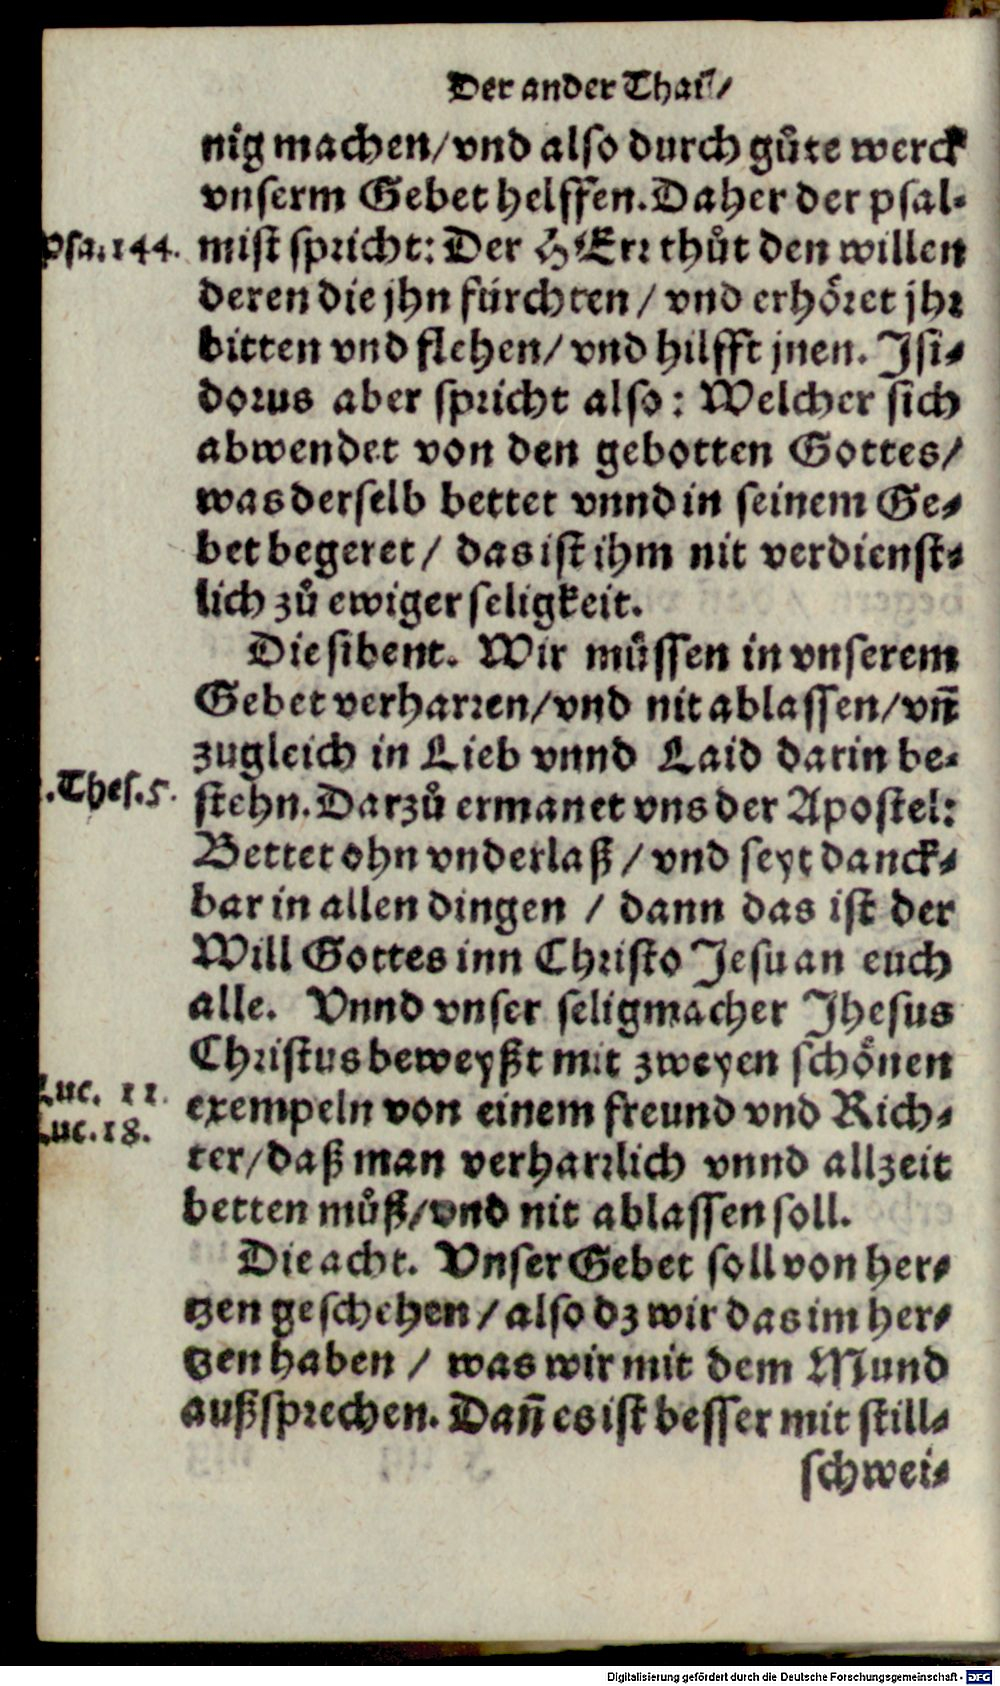 Der ander Thail/
nig machen/ vnd also durch gůte werck
vnserm Gebet helffen. Daher der psal-
Psa. 144.
mist spricht: Der HErr thůt den willen
deren die jhn fürchten / vnd erhöret jhr
bitten vnd flehen/ vnd hilfft jnen. Jsi-
dorus aber spricht also: Welcher sich
abwendet von den gebotten Gottes/
was derselb bettet vnnd in seinem Ge-
bet begeret / das ist ihm nit verdienst-
lich zů ewiger seligkeit.
Die sibent. Wir müssen in vnserem
Gebet verharren/ vnd nit ablassen/ vn̄
zugleich in Lieb vnnd Laid darin be-
.Thes. 5.
stehn. Darzů ermanet vns der Apostel:
Bettet ohn vnderlaß / vnd seyt danck-
bar in allen dingen / dann das ist der
Will Gottes inn Christo Jesu an euch
alle. Vnnd vnser seligmacher Jhesus
Christus beweyßt mit zweyen schönen
Luc. 11.
exempeln von einem freund vnd Rich-
Luc. 18.
ter/ daß man verharrlich vnnd allzeit
betten můß/ vnd nit ablassen soll.
Die acht. Vnser Gebet soll von her-
tzen geschehen / also dz wir das im her-
tzen haben / was wir mit dem Mund
außsprechen. Dan̄ es ist besser mit still-
schwei-
Digitalisierung gefördert durch die Deutsche Forschungsgemeinschaft - DFG